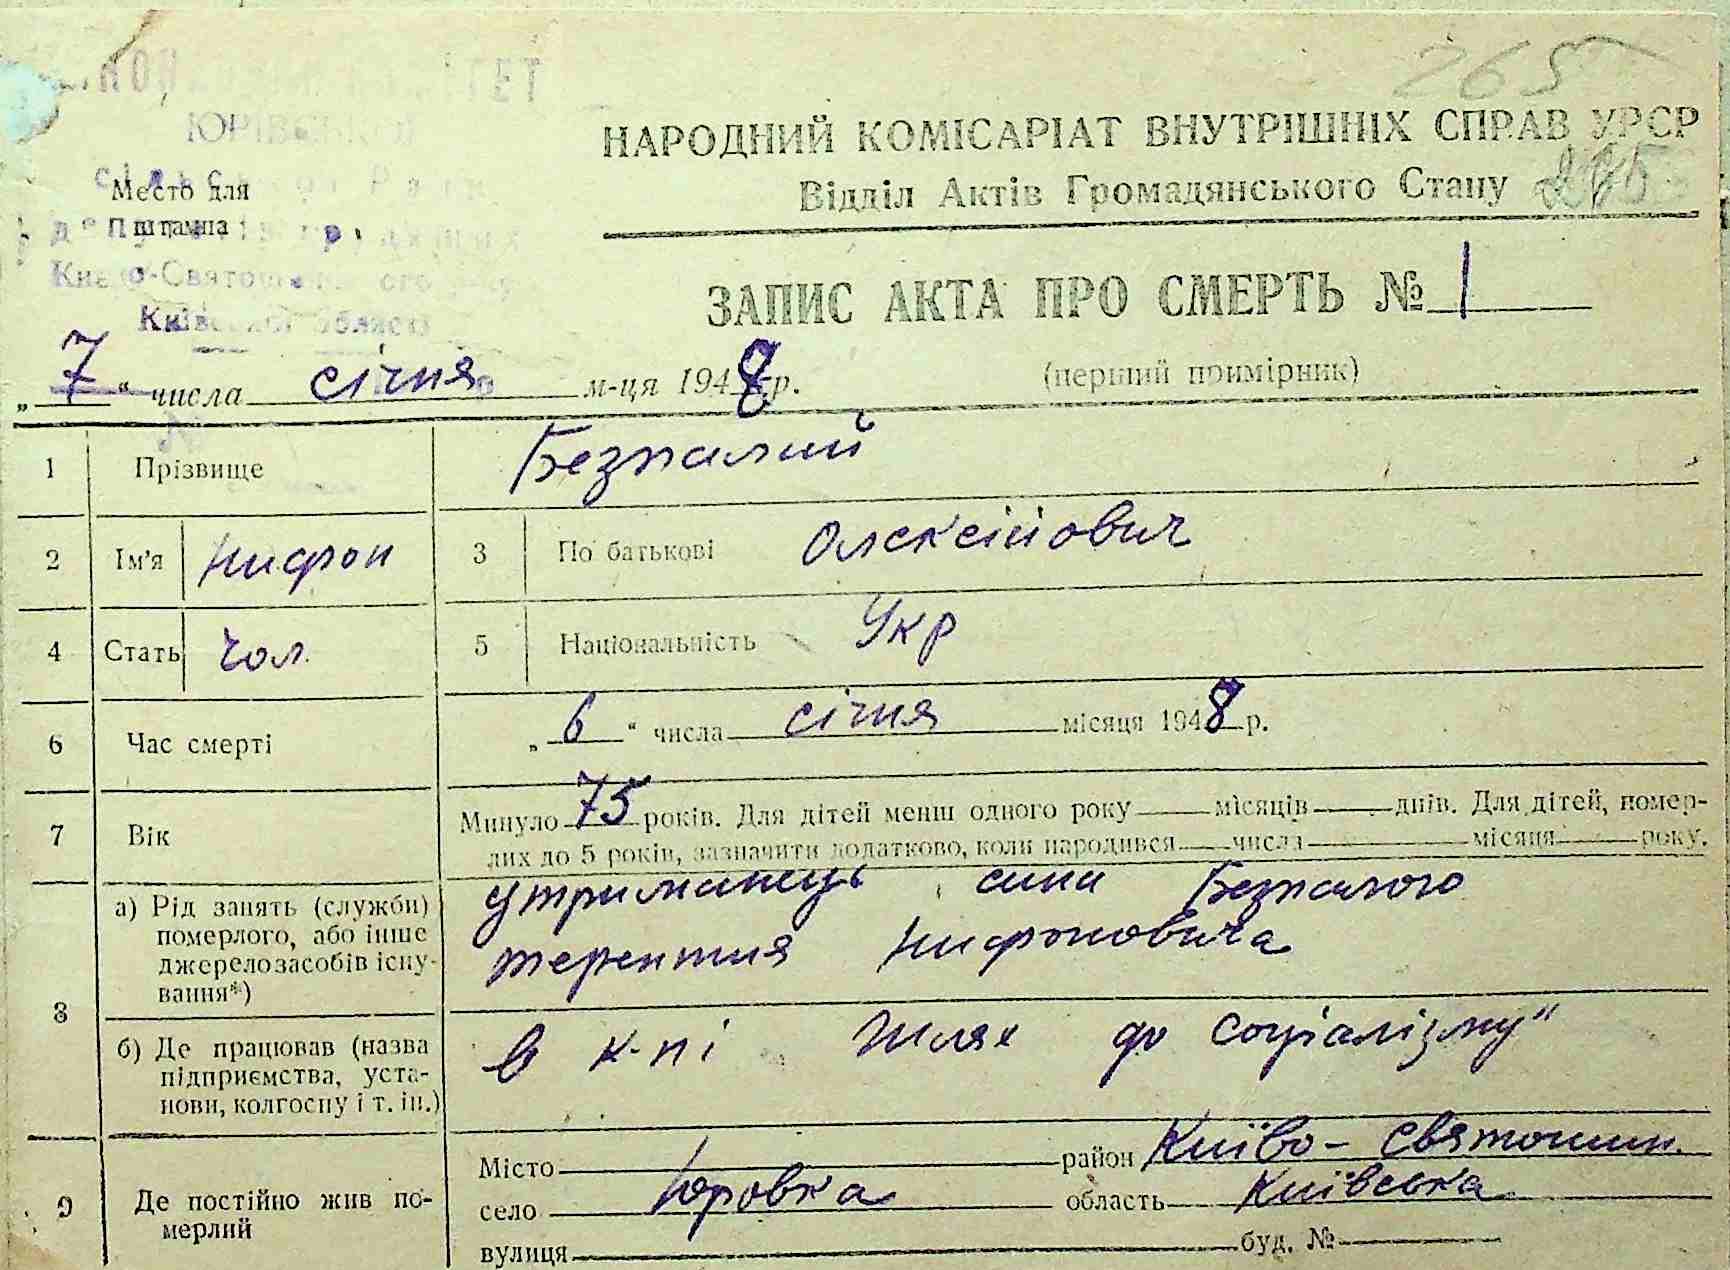 265
ЮРІВСЬКОЇ
НАРОДНИЙ КОМІСАРІАТ ВНУТРІШНІХ СПРАВ УРСР
Відділ Актів Громадянського Стану
Место для
штампа
Києво-Святошинського
Київської області
ЗАПИС АКТА ПРО СМЕРТЬ № 1
„7“ числа січня м-ця 1948 р. (перший примірник)
1 Прізвище Безпалий
2 Ім'я Нифон 3 По батькові Олексійович
4 Стать чол. 5 Національність Укр
6 Час смерті „6“ числа січня місяця 1948 р.
7 Вік Минуло 75 років. Для дітей менш одного року — місяців — днів. Для дітей, помер-
лих до 5 років, зазначити додатково, коли народився — числа — місяця — року.
8 а) Рід занять (службі)
померлого, або інше
джерело засобів існу-
вання*)
утриманець сина Безпалого
терентия Нифоновича
б) Де працював (назва
підприємства, уста-
нови, колгоспу і т. ін.)
в к-пі Шлях до соціалізму"
9 Де постійно жив по-
мерлий
Місто район Київо-Святошин.
село Юровка область Київська
вулиця буд. №